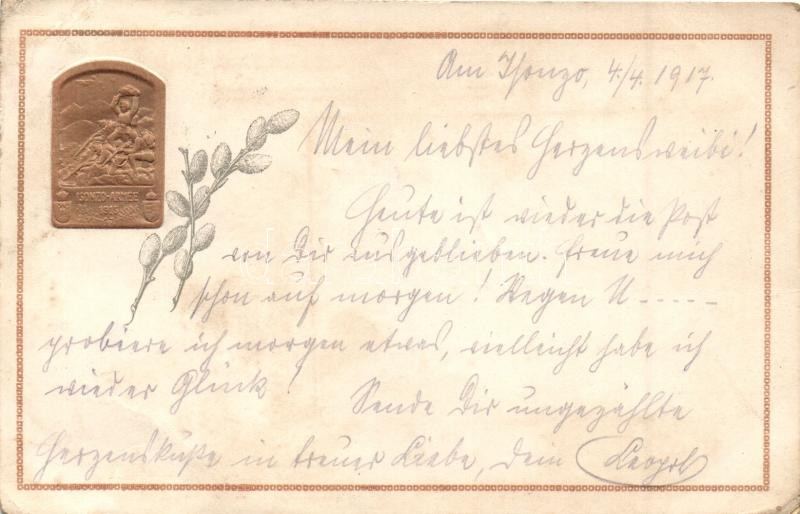 ISONZO-ARMEE
Am Isonzo, 4./4. 1917.
Mein liebstes Herzensweibi!
Heute ist wieder die Post
von Dir ausgeblieben. Freue mich
schon auf morgen! Wegen U-----
probiere ich morgen etwas, vielleicht habe ich
wieder Glück! Sende Dir ungezählte
Herzensküße in treuer Liebe, Dein